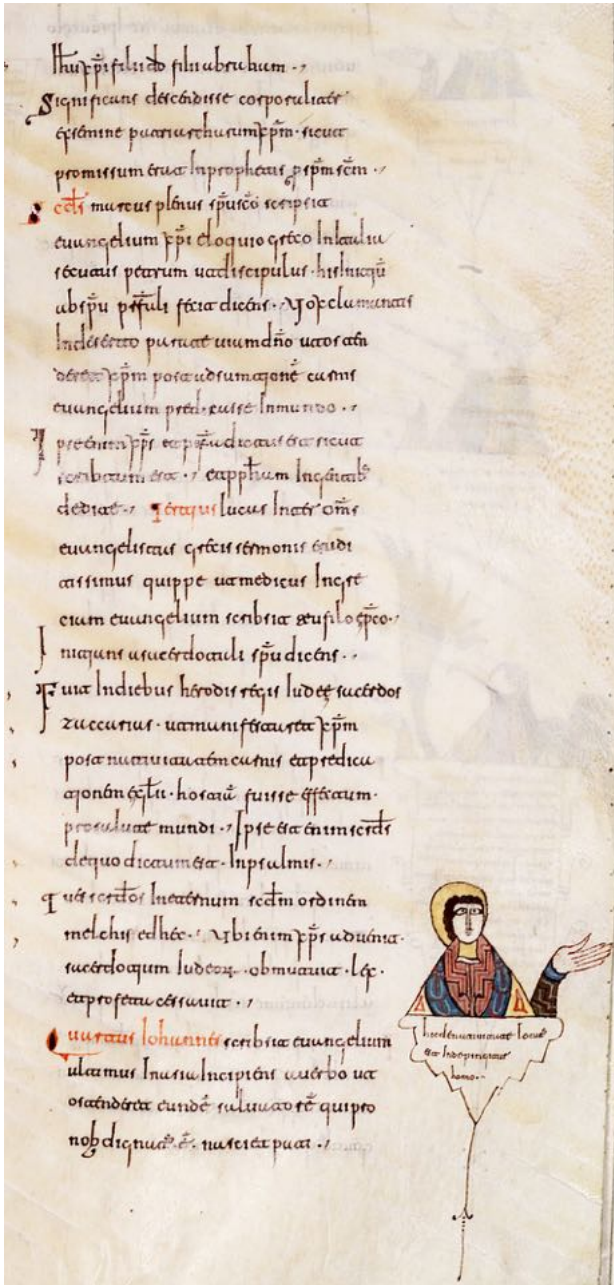 Ihu xpi filii dd filii abraham ·
Significans descendisse corporaliter
ex semine patriarcharum xp̄m · sicut
promissum erat In prophetis p sp̄m sc̄m ·
Sc̄ds marcus plenus sp̄u sc̄o scripsit
euangelium xp̄i eloquio greco In italia
secutus petrum ut discipulus · his Initiū
ab sp̄u profetali fecit dicens · Vox clamantis
In deserto parate uiam dn̄o ut osten
deret xp̄m post adsumtionē carnis
euangelium predicasse In mundo ·
Ipse enim xp̄s et pfeta dictus est sicut
scribtum est · et Ingentib̄
dedi te · Tertius lucas Inter om̄s
euangelistas grecis sermonis erudi
tissimus quippe ut medicus In gre
cium euangelium scribsit teofilo ep̄sco ·
Initians a sacerdotali sp̄u dicens ·
Fuit In diebus herodis regis Iudeę sacerdos
zaccarias · ut manifestaret xp̄m
post natiuitatem carnis et predica
tionem eglīi · hostiā fuisse effectum ·
pro salute mundi · Ipse est enim scr̄ds
de quo dictum est · In psalmis ·
Tu es scrd̄os In eternum scd̄m ordinem
melchisedhec · Ubi enim xp̄s aduenit ·
sacerdotium Iudeorꝝ · obmutuit · lex ·
et profetia cessauit ·
Quartus Iohannes scribsit euangelium
ultimus In asia Incipiens a uerbo ut
ostenderet eundē saluatorē qui pro
nob̄ dignat' ē · nasci et pati ·
natiuitate
est Inde pingitur
homo ·